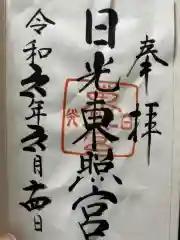 奉拝
日光東照宮
令和年月日